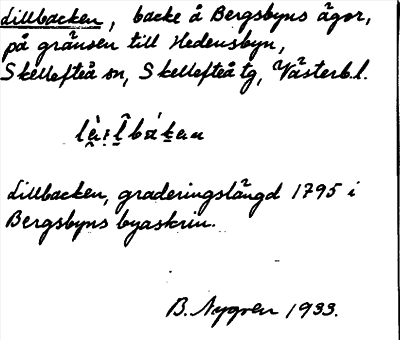 Lillbacken, backe å Bergsbyns ägor,
på gränsen till Hedensbyn,
Skellefteå sn, Skellefteå tg, Västerb.l.
Lillbacken, graderingslängd 1795 i
Bergsbyns byaskrin.
B. Nygren 1933.